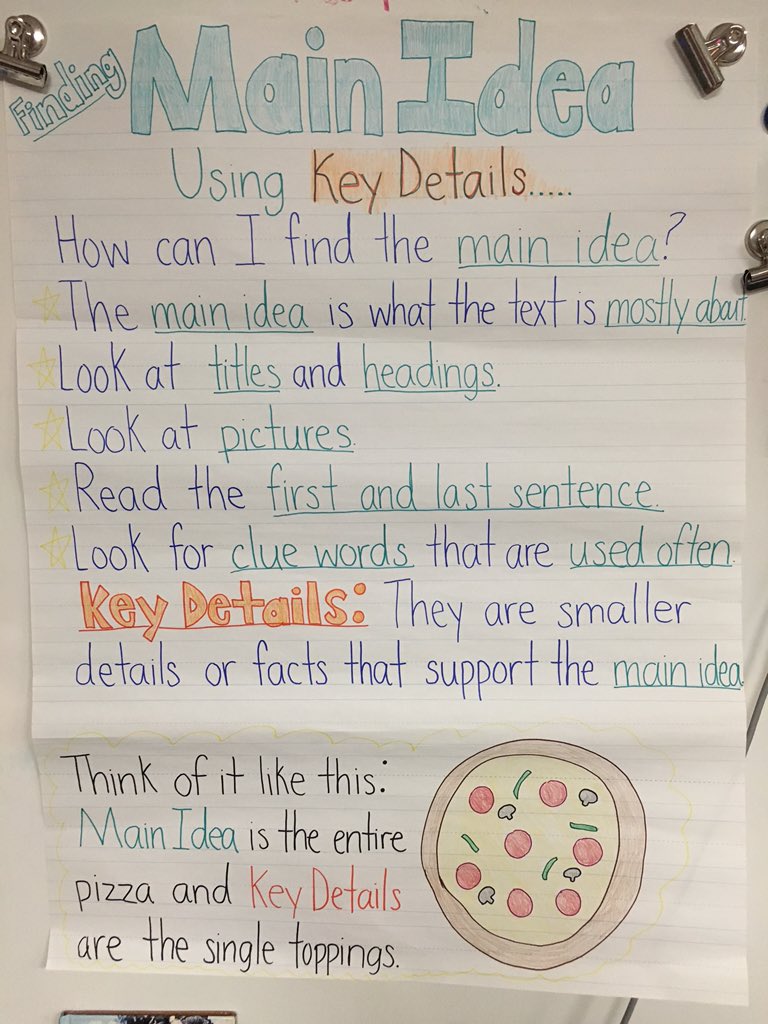 Finding Main Idea
Using Key Details.....
How can I find the main idea?
The main idea is what the text is mostly about.
Look at titles and headings.
Look at pictures.
Read the first and last sentence.
Look for clue words that are used often.
Key Details: They are smaller
details or facts that support the main idea.
Think of it like this:
Main Idea is the entire
pizza and Key Details
are the single toppings.